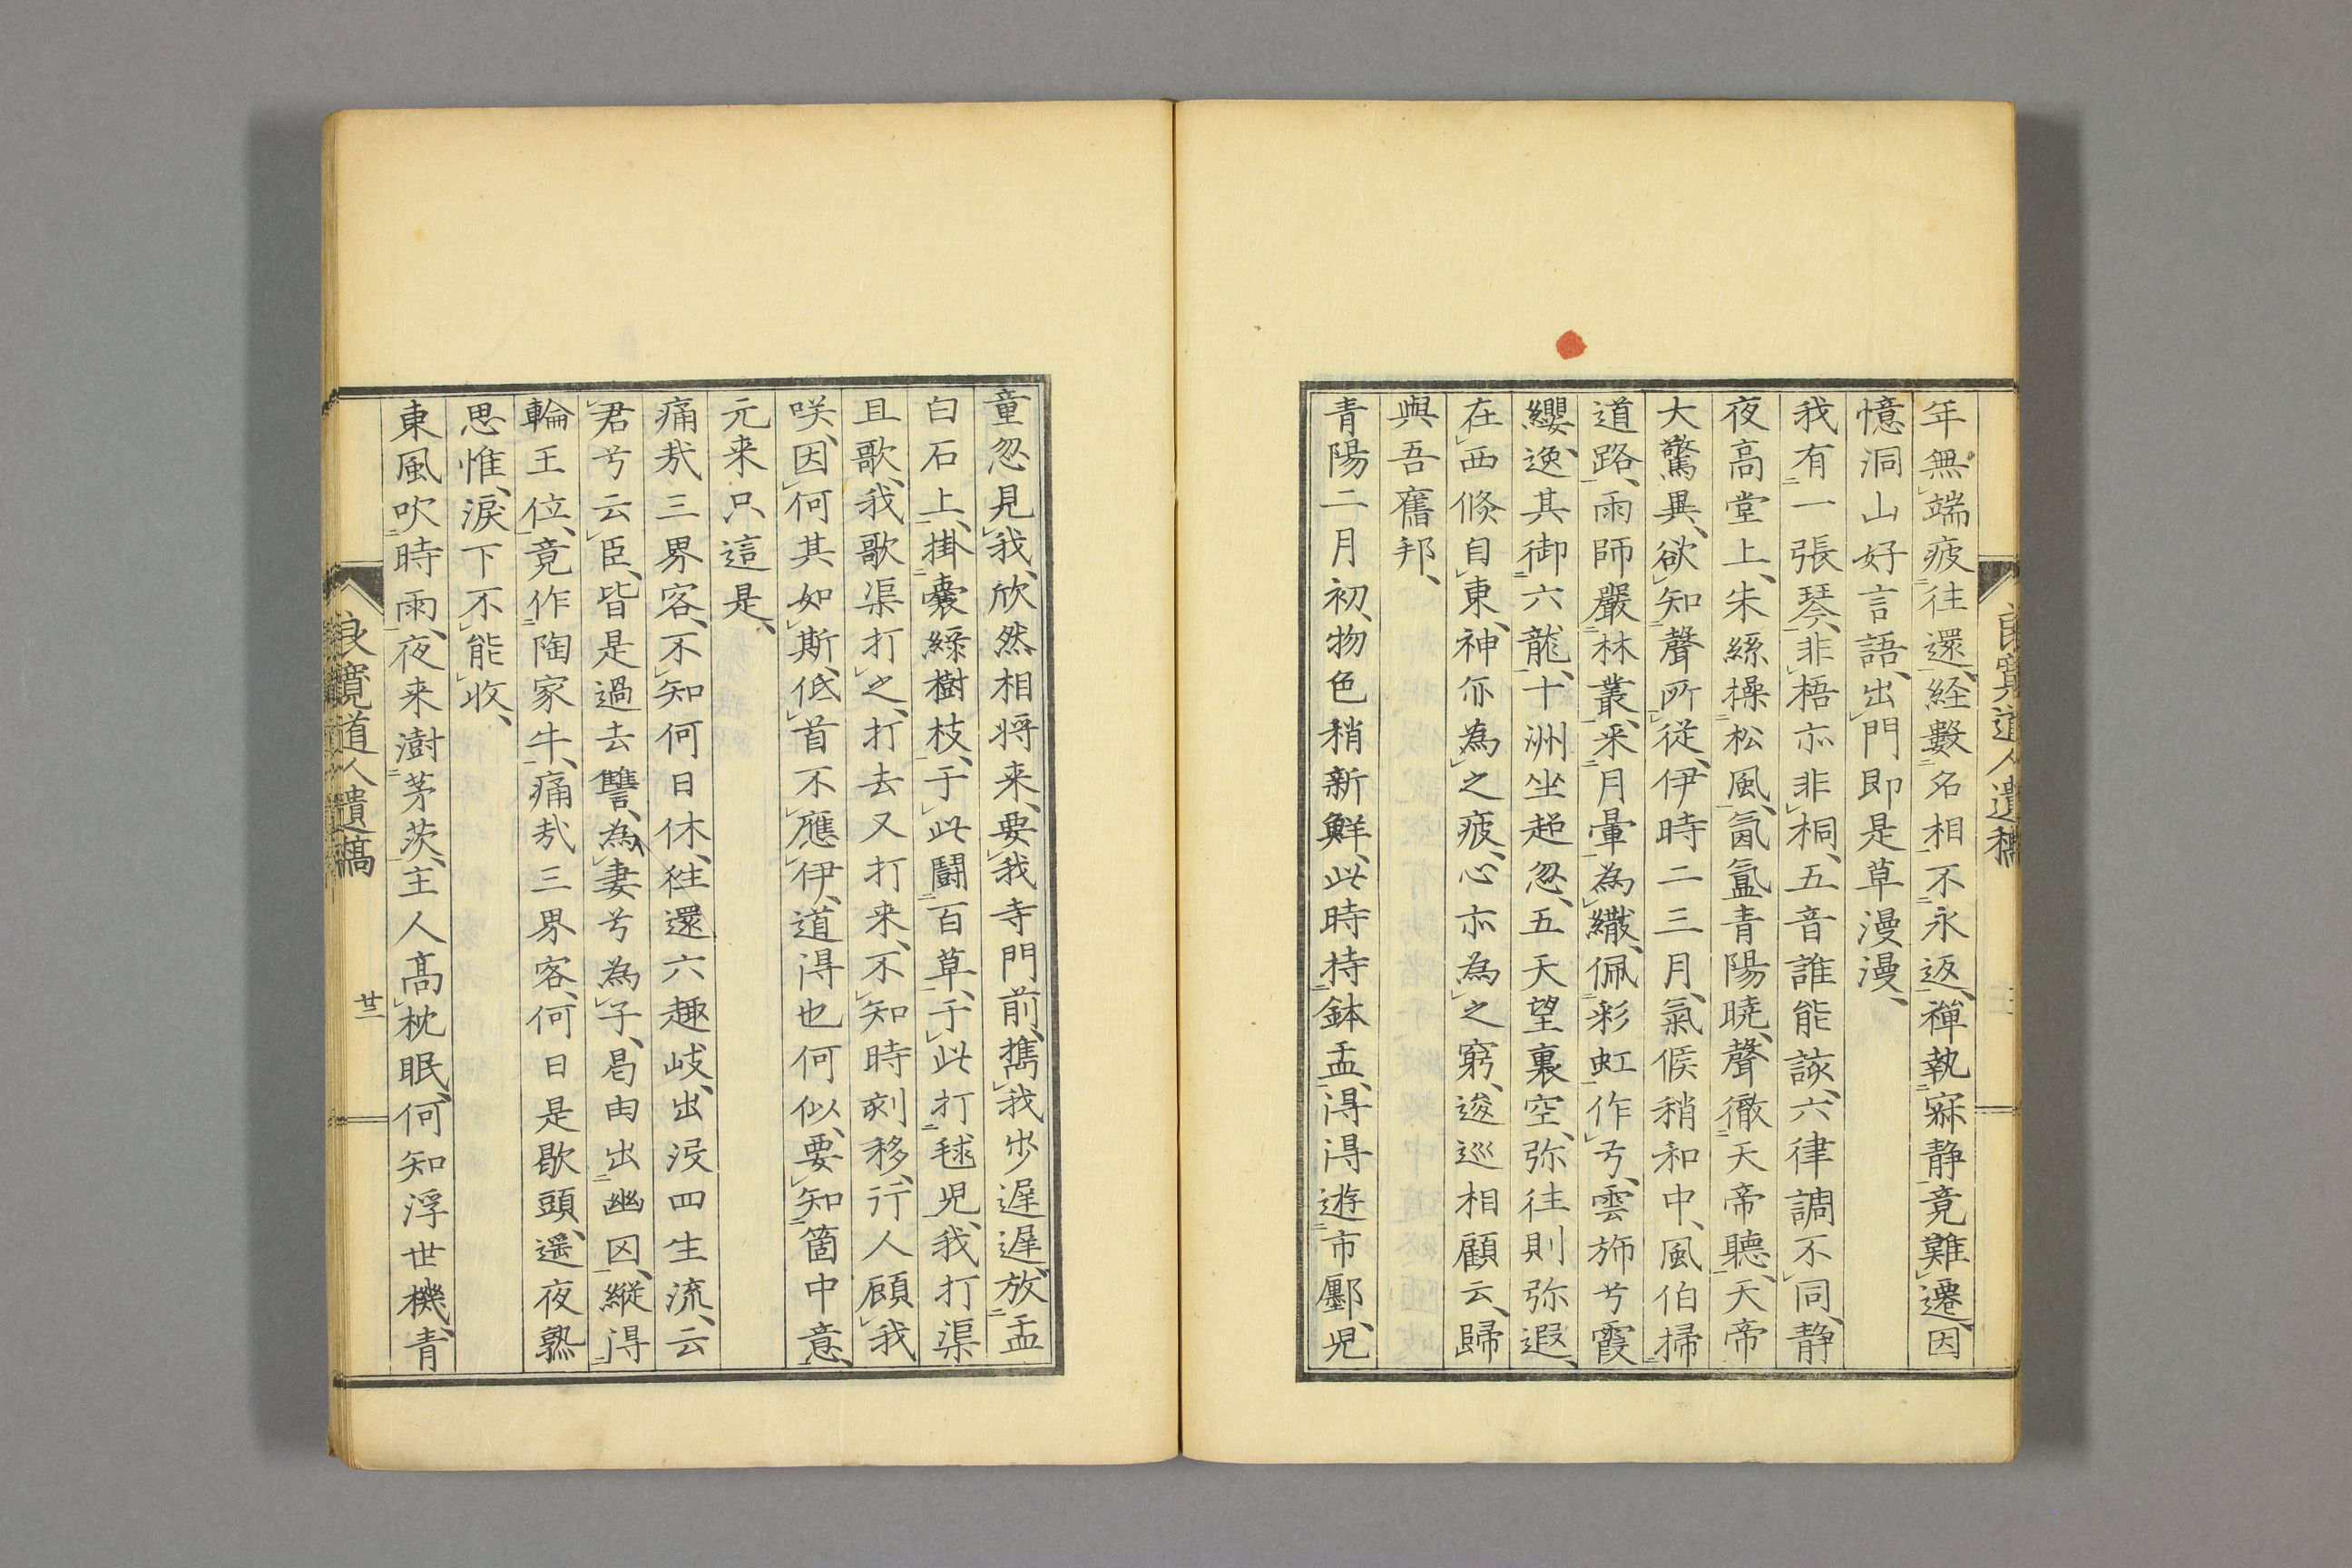 年無端疲往還、経數名相不永返、禅執寂静竟難遷、因
憶洞山好言語、出門即是草漫漫、
我有一張琴、非梧亦非桐、五音誰能該、六律調不同、静
夜高堂上、朱絲操松風、氤氳青陽曉、聲徹天帝聽、天帝
大驚異、欲知聲所從、伊時二三月、氣候稍和中、風伯掃
道路、雨師嚴林叢、采月暈為繖、佩彩虹作弓、雲斾兮霞
纓、逸其御六龍、十洲坐超忽、五天望裏空、弥往則弥遐、
在西倏自東、神尓為之疲、心亦為之窮、逡巡相顧云、歸
與吾舊邦、
青陽二月初、物色稍新鮮、此時持鉢盂、得得遊市鄽、児
童忽見我、欣然相将来、要我寺門前、携我步遅遅、放盂
白石上、掛嚢緑樹枝、于此鬪百草、于此打毬児、我打渠
且歌、我歌渠打之、打去又打来、不知時刻移、行人顧我
咲、因何其如斯、低首不應伊、道得也何似、要知箇中意、
元来只這是、
痛哉三界客、不知何日休、徃還六趣岐、出没四生流、云
君兮云臣、皆是過去讐、為妻兮為子、曷由出幽囚、縦得
輪王位、竟作陶家牛、痛哉三界客、何日是歇頭、遥夜熟
思惟、涙下不能收、
東風吹時雨、夜来澍茅茨、主人高枕眠、何知浮世機、青
良寛道人遺稿
廿三